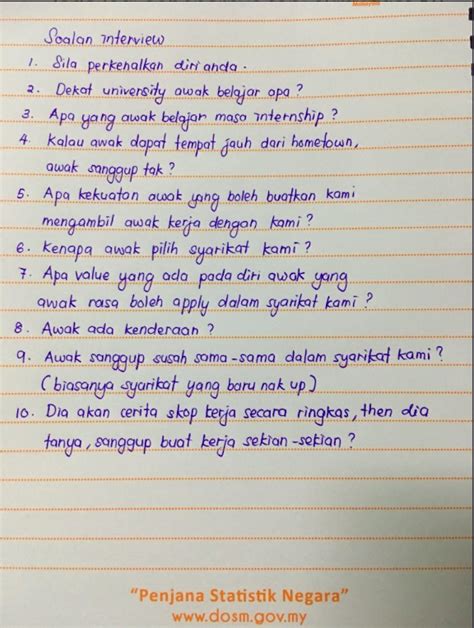 Malaysia
Soalan interview
1. Sila perkenalkan diri anda.
2. Dekat university awak belajar apa?
3. Apa yang awak belajar masa internship?
4. Kalau awak dapat tempat jauh dari hometown,
awak sanggup tak?
5. Apa kekuatan awak yang boleh buatkan kami
mengambil awak kerja dengan kami?
6. Kenapa awak pilih syarikat kami?
7. Apa value yang ada pada diri awak yang
awak rasa boleh apply dalam syarikat kami?
8. Awak ada kenderaan?
9. Awak sanggup susah sama-sama dalam syarikat kami?
(biasanya syarikat yang baru nak up)
10. Dia akan cerita skop kerja secara ringkas, then dia
tanya, sanggup buat kerja sekian-sekian?
"Penjana Statistik Negara"
www.dosm.gov.my